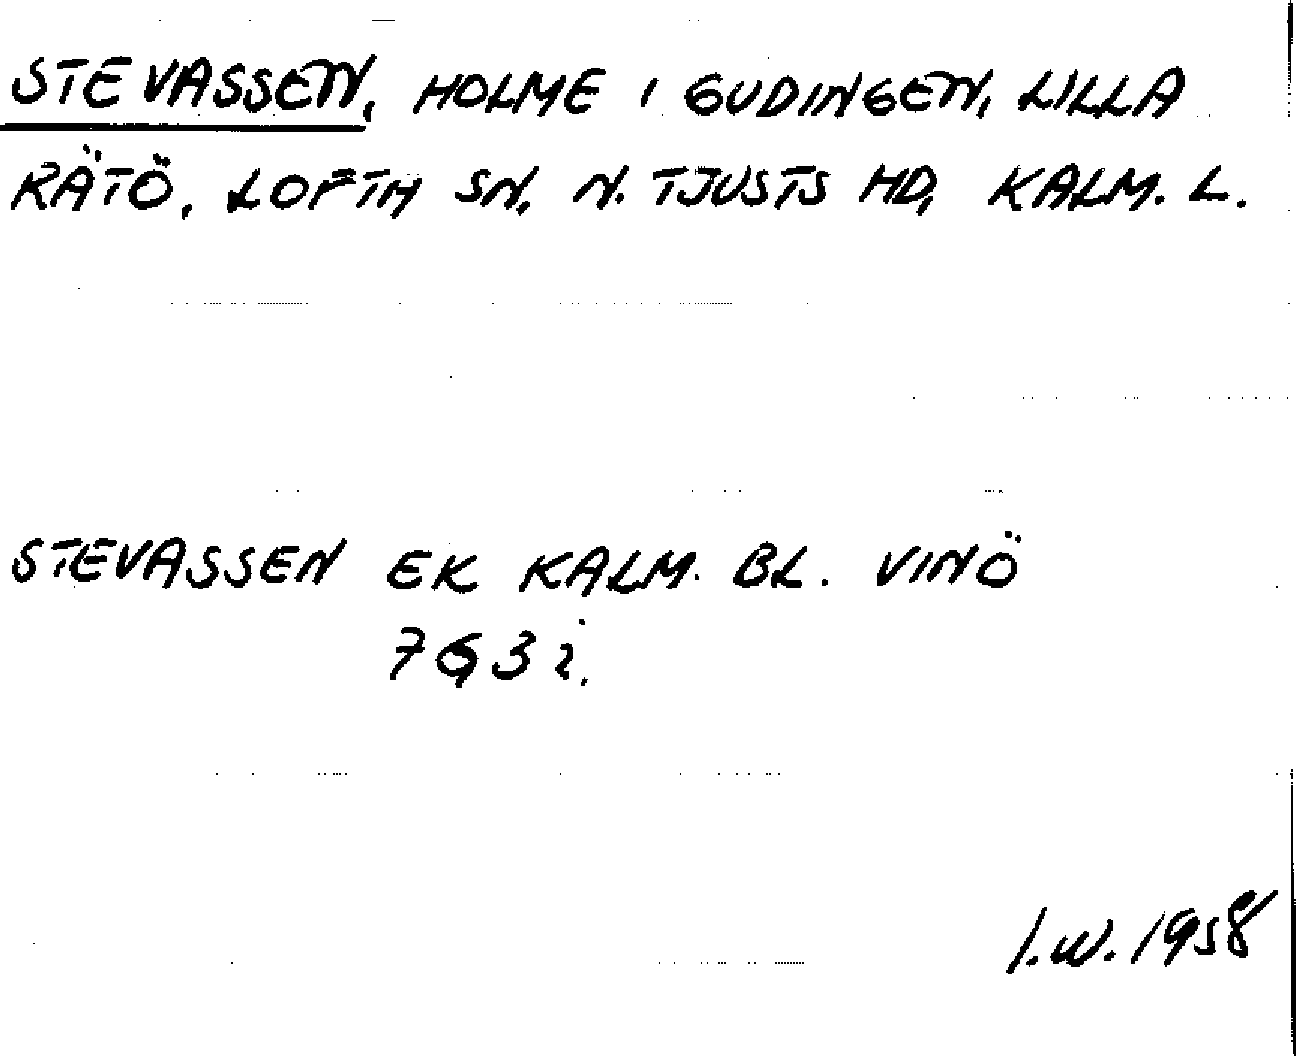 STEVASSEN, HOLME I GUDINGEN, LILLA
RÄTÖ, LOFTH SN, N. TJUSTS HD, KALM. L.
STEVASSEN EK KALM. BL. VINÖ
7G3i.
I.W. 1958